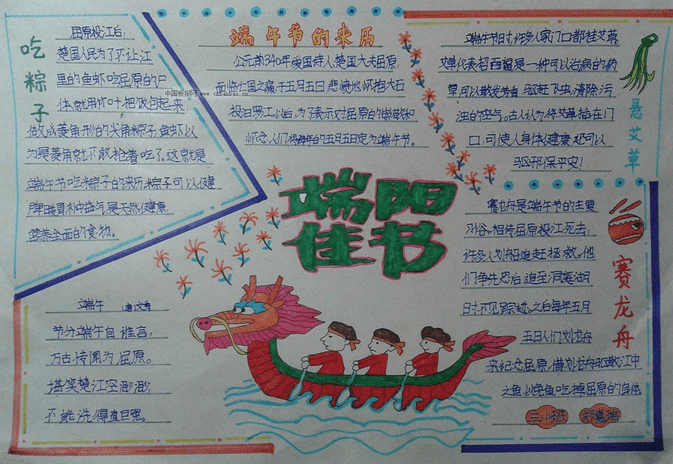 吃粽子
屈原投江后,
楚国人民为了不让江
里的鱼虾吃屈原的尸
体就用叶把饭包起来
做成菱角形的尖角粽子,鱼虾以
为是菱角就不敢抢着吃了,这就是
端午节吃粽子的来历,粽子可以健
脾暖胃补中益气,是天然健康
营养全面的食物。
端午节的来历
公元前340年,爱国诗人,楚国大夫屈原,
面临亡国之痛于五月五日,悲愤地怀抱大石
投汨罗江以后,为了表示对屈原的崇敬和
怀念,人们将每年的五月五日定为端午节。
端午节时,许多人家门口都挂艾草,
艾草代表招百福,是一种可以治病的
清除污
浊的空气。古人认为将艾草插在门
口,可使人身体健康,还可以
驱邪保平安!
悬艾草
端阳
佳节
赛龙舟是端午节的主要
习俗。相传屈原投江死去,
许多人划船追赶拯救。他
们争先恐后追至洞庭湖
时不见踪迹。之后每年五月
五日人们划龙舟
来纪念屈原,借划龙舟驱散江中
之鱼,以免鱼吃掉屈原的身体
赛龙舟
三小班
端午
节分端午自谁言,
万古传闻为屈原。
堪笑楚江空渺渺,
不能洗得直臣冤。